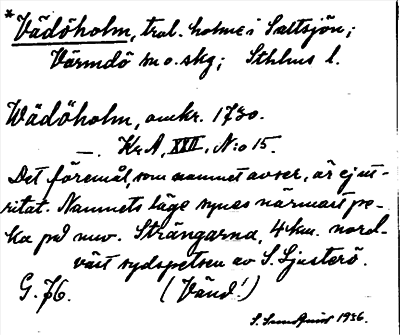 *Vädöholm, trol. holme i Saltsjön;
Värmdö sn o. skg; Sthlms l.
Wädöholm, omkr. 1730.
—. Kr A, XXII, N:o 15.
Det föremål, som namnet avser, är ej ut-
ritat. Namnets läge synes närmast pe-
ka på nuv. Strängarna, 4 km. nord-
väst sydspetsen av S. Ljusterö.
G. 76. (Vänd!)
S. Sundquist 1936.